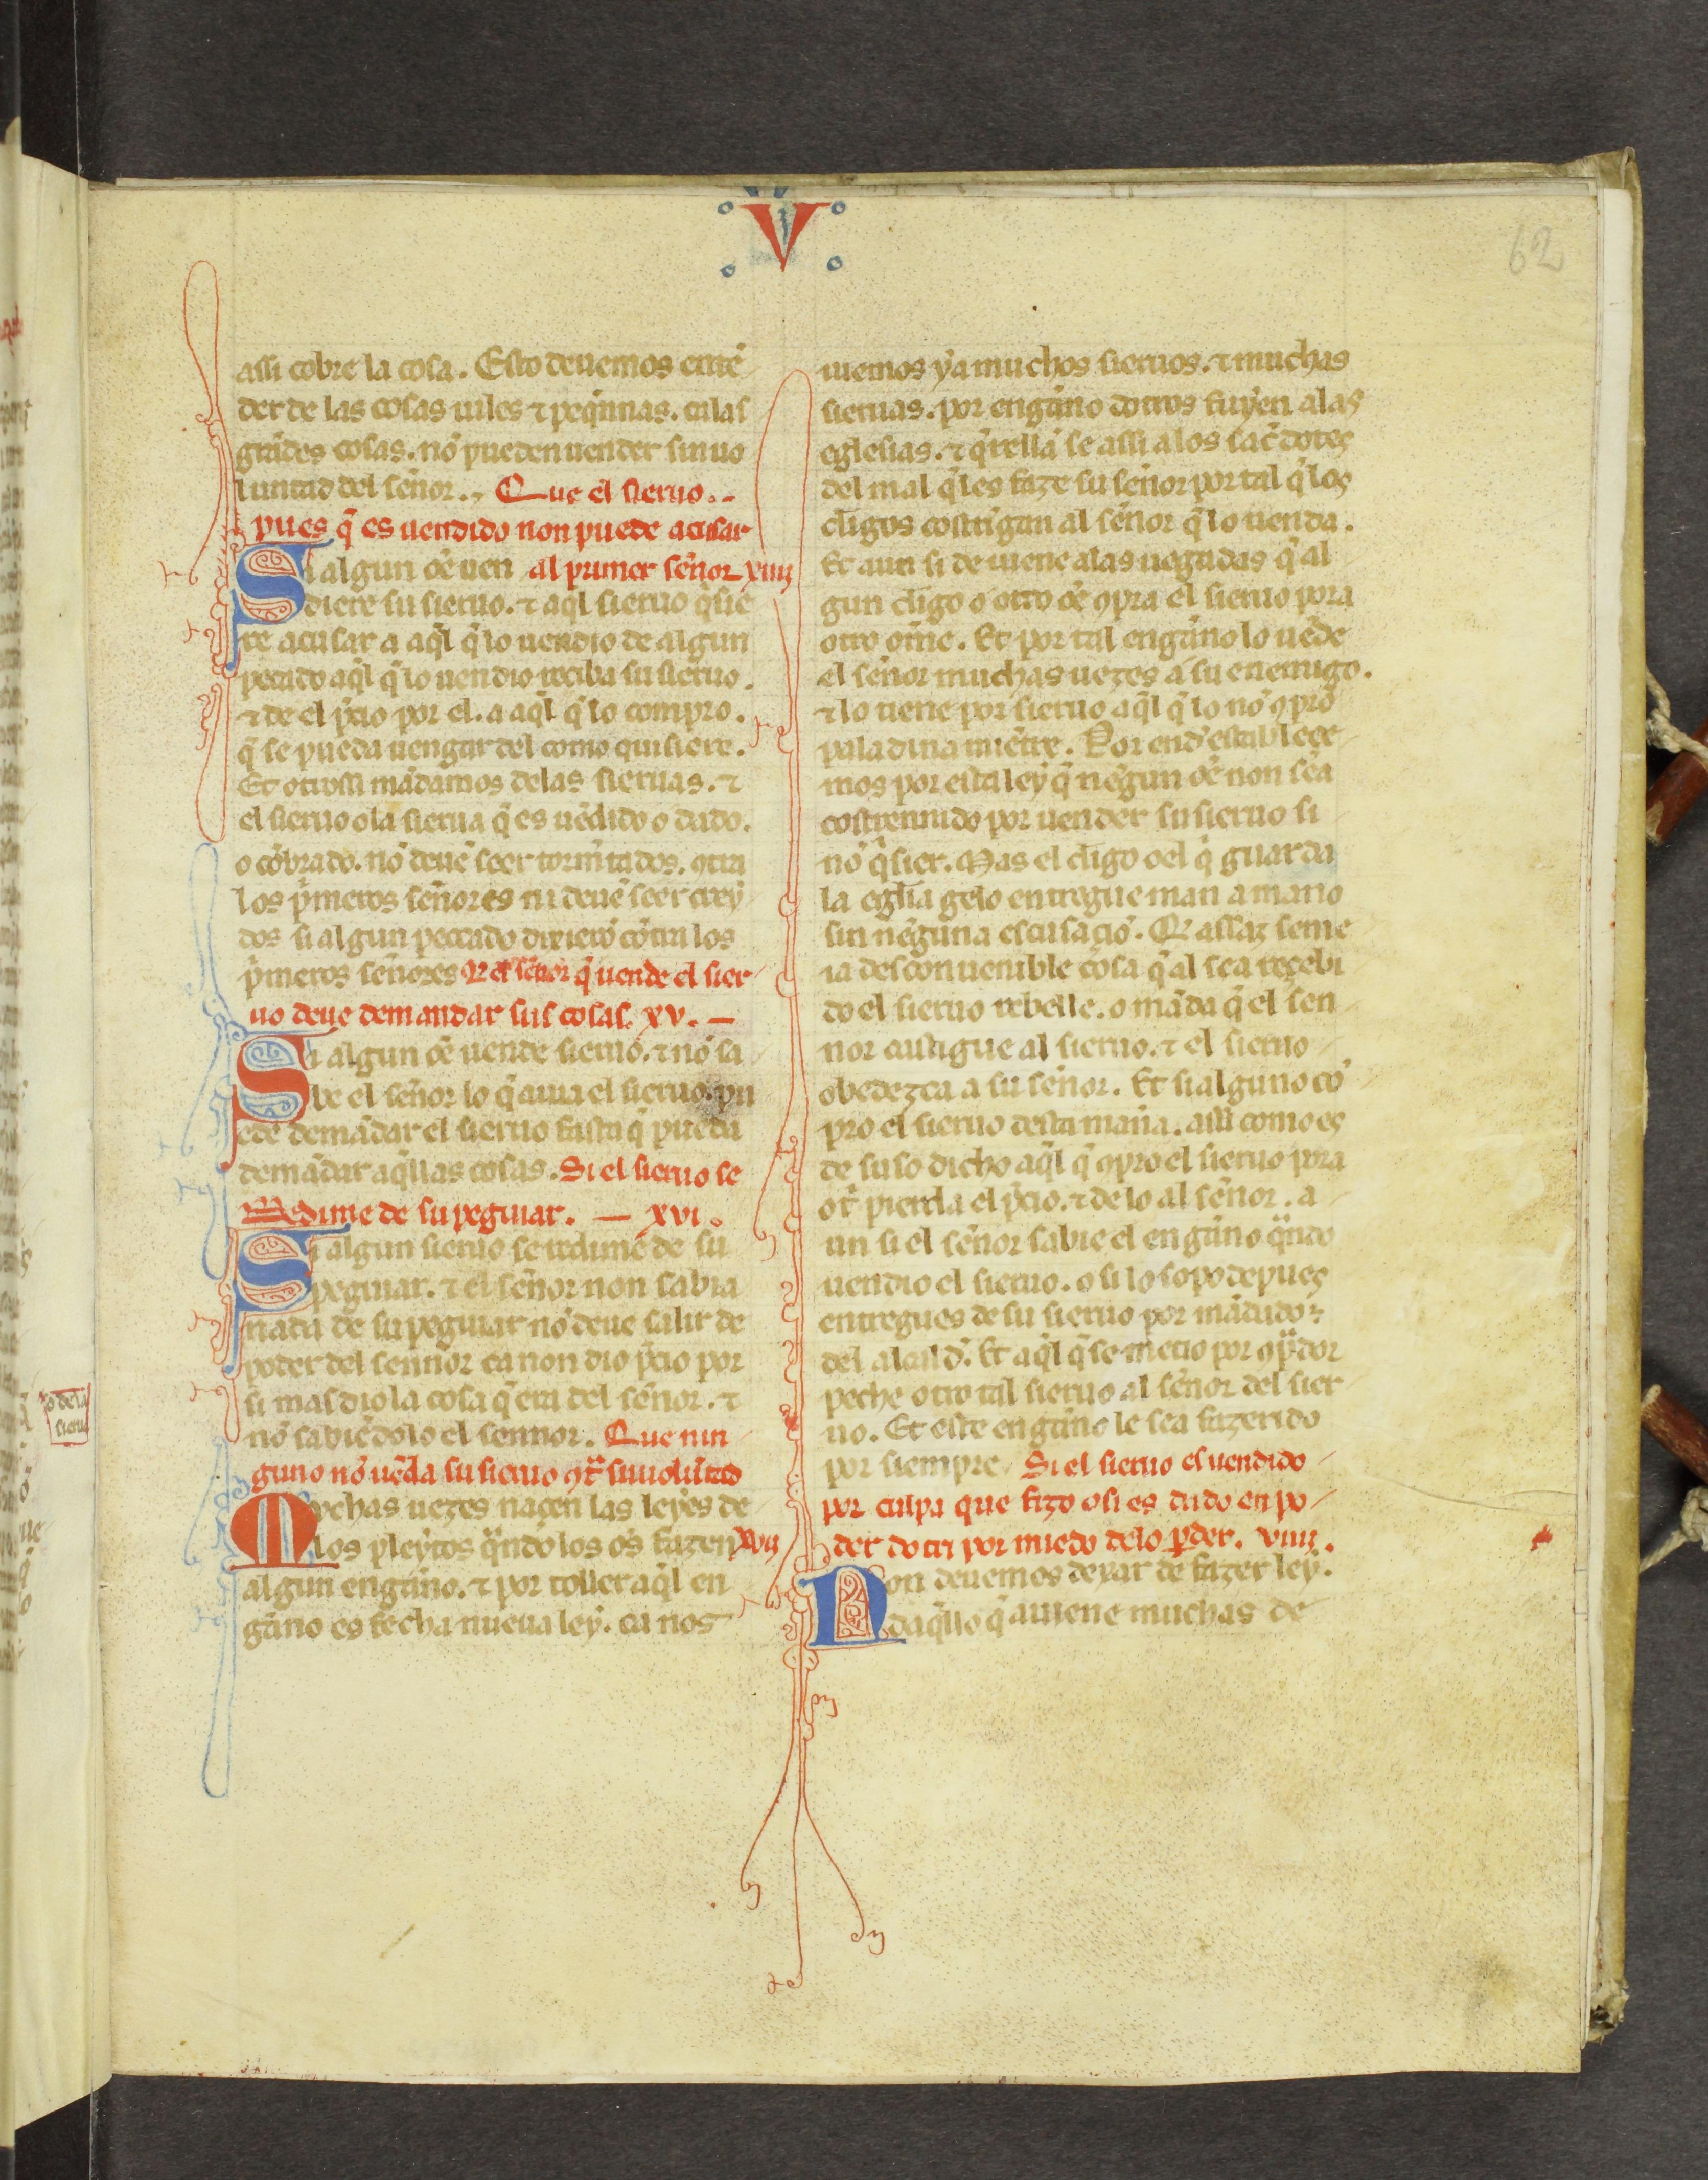 V
62
assi cobre la cosa. Esto deuemos entē
der de las cosas uiles ⁊ peq̄nnas. ca las
grādes cosas. nō pueden uender sin uo
luntad del señor. Que el sieruo.
pues q̄ es uendido non puede acusar
al primer señor xiiij
Si algun oē uen
diere su sieruo. ⁊ aq̄l sieruo q̄sie
re acusar a aq̄l q̄ lo uendio de algun
pecado aq̄l q̄ lo uendio reciba su sieruo.
⁊ de el p̄cio por el. a aq̄l q̄ lo compro.
q̄ se pueda uengar del como quisiere.
Et otrossi mādamos delas sieruas. ⁊
el sieruo o la sierua q̄ es uēdido o dado.
o cōbrado. nō deuē seer tormētados. ꝯtra
los p̄meros señores ni deuē seer crey
dos si algun peccado dixierō cōtra los
p̄meros señores Q̄ el señor q̄ uende el sier
uo deue demandar sus cosas. xv.
Si algun oē uende sieruo. ⁊ nō sa
be el señor lo q̄ auia el sieruo. pu
ede demādar el sieruo fasta q̄ pueda
demādar aq̄llas cosas. Si el sieruo se
Redime de su peguiar. xvi.
Si algun sieruo se redime de su
peguiar. ⁊ el señor non sabia
nada de su peguiar nō deue salir de
poder del sennor ca non dio p̄cio por
si mas dio la cosa q̄ era del señor. ⁊
nō sabiēdolo el sennor. Que nin
guno nō uēda su sieruo ꝯt̄ su uolūtad
xvij
Mvchas uezes naçen las leyes de
los pleytos q̄ndo los oс̄ fazen
algun engāno. ⁊ por toller aq̄l en
gāno es fecha nueua ley. ca nos
uiemos ya muchos sieruos. ⁊ muchas
sieruas. por engāno dotros fuyen alas
eglesias. ⁊ q̄rellā se assi a los sac̄dotes
del mal q̄ les faze su señor por tal q̄ los
cl̄igos costrigan al señor q̄ lo uenda.
Et aun si de uiene alas uegadas q̄ al
gun cl̄igo o otro oē ꝯpra el sieruo pora
otro ome. Et por tal engāno lo uēde
el señor muchas uezes a su enemigo.
⁊ lo tiene por sieruo aq̄l q̄ lo nō ꝯpro
paladina miētre. Por end establece
mos por esta ley q̄ nēgun oē non sea
costrennido por uender su sieruo si
nō q̄sier. Mas el cl̄igo o el q̄ guarda
la egl̄ia gelo entregue man a mano
sin nēguna escusaciō. Q̄ assaz seme
ia desconuenible cosa q̄ al sea recebi
do el sieruo rebelle. o māda q̄ el sen
nor castigue al sieruo. ⁊ el sieruo
obedezca a su señor. Et si alguno cō
pro el sieruo desta mañia. assi como es
de suso dicho aq̄l q̄ ꝯpro el sieruo pora
ot̄ pierda el p̄cio. ⁊ de lo al señor. a
un si el señor sabie el engāno q̄ndo
uendio el sieruo. o si lo sopo depues
entregues de su sieruo por mādado
del alcald̄. Et aq̄l q̄ se metio por ꝯp̄dor
peche otro tal sieruo al señor del sier
uo. Et este engāno le sea fazerido
por siempre Si el sieruo es uendido
por culpa que fizo o si es dado en po
der dotri por miedo de lo ꝑder. viii.
Non deuemos dexar de fazer ley.
daq̄llo q̄ auiene muchas de